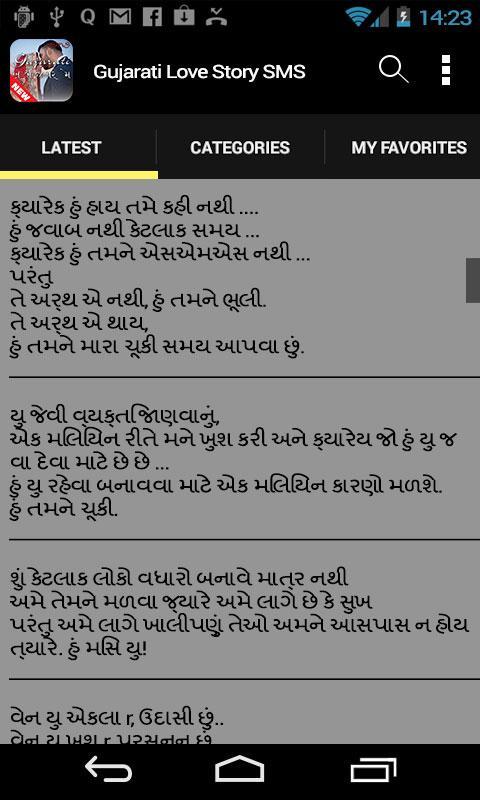 14:23
Gujarati Love Story SMS
NEW
LATEST CATEGORIES MY FAVORITES
ક્યારેક હું હાય તમે કહી નથી ....
હું જવાબ નથી કેટલાક સમય ...
ક્યારેક હું તમને એસએમએસ નથી ...
પરંતુ
તે અર્થ એ નથી, હું તમને ભૂલી.
તે અર્થ એ થાય,
હું તમને મારા ચૂકી સમય આપવા છું.
યુ જેવી વ્યક્તિજાણવાનું,
એક મિલિયન રીતે મને ખુશ કરી અને ક્યારેય જો હું યુ જ
વા દેવા માટે છે છે ...
હું યુ રહેવા બનાવવા માટે એક મિલિયન કારણો મળશે.
હું તમને ચૂકી.
શું કેટલાક લોકો વધારો બનાવે માત્ર નથી
અમે તેમને મળવા જ્યારે અમે લાગે છે કે સુખ
પરંતુ અમે લાગે ખાલીપણું તેઓ અમને આસપાસ ન હોય
ત્યારે. હું મિસ યુ!
વેન યુ એકલા r, ઉદાસી છું..
વેન યુ ખુશ r પ્રસન્ન છું